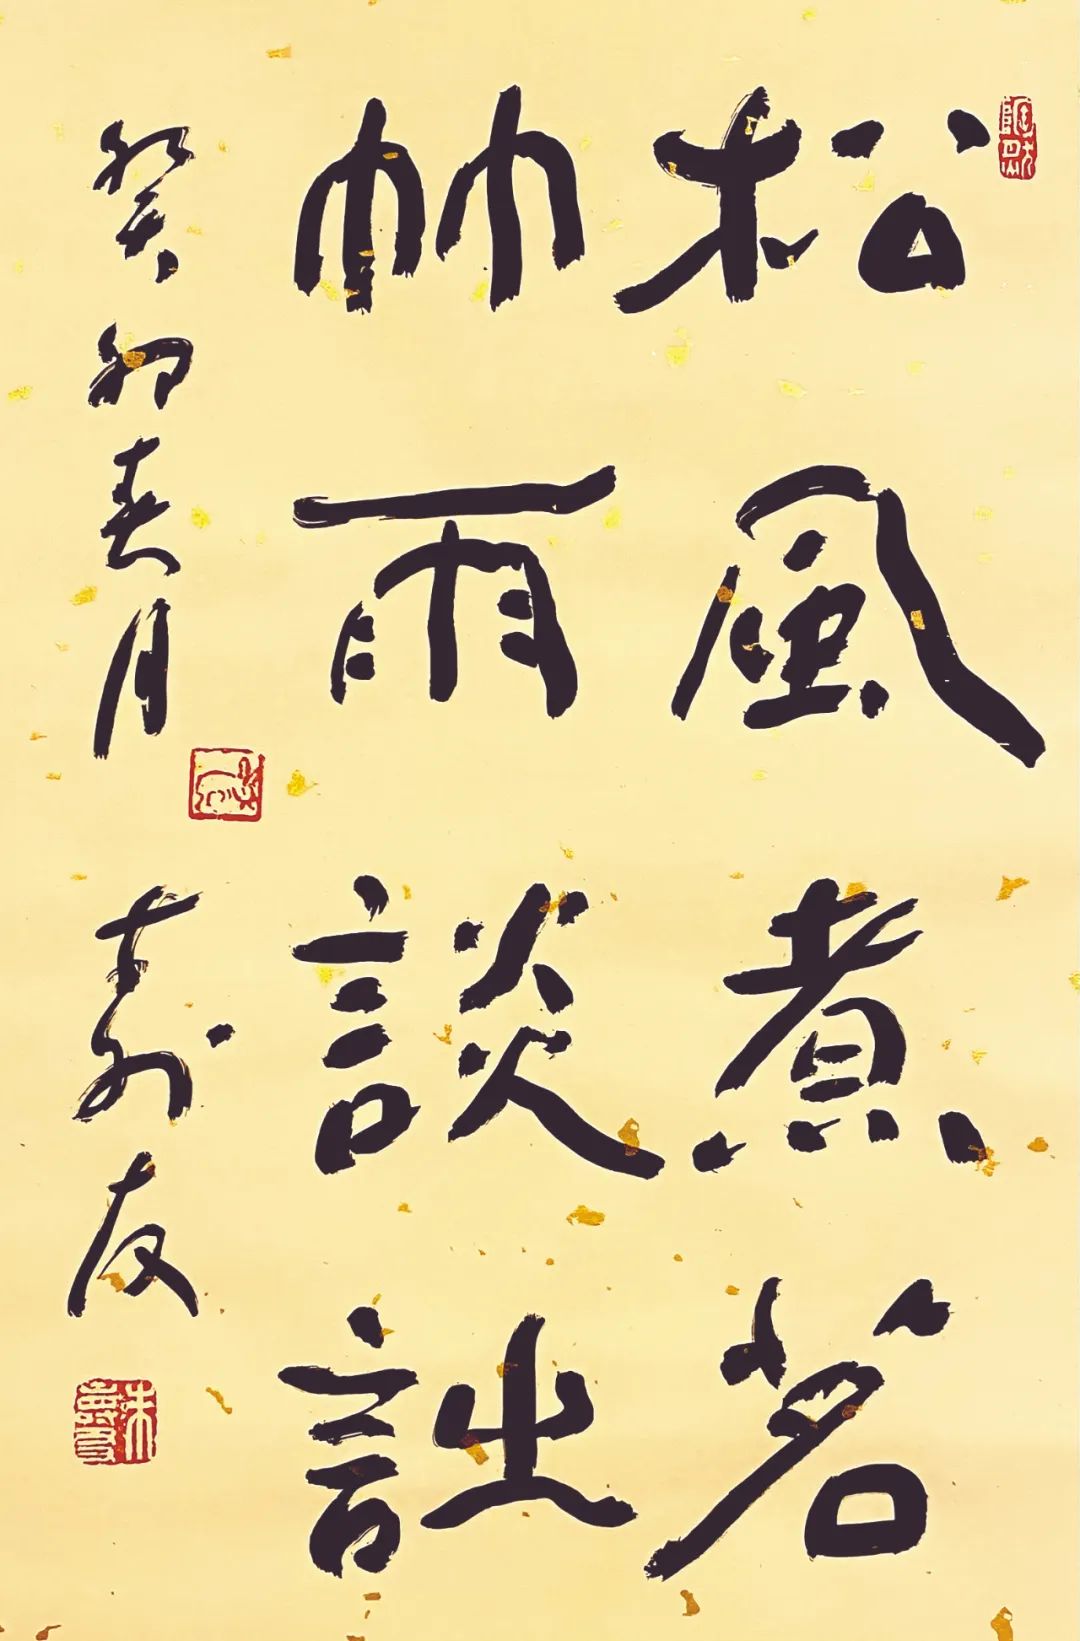 松風煮茗
竹雨談詩
癸卯春月 壽友
朱壽友